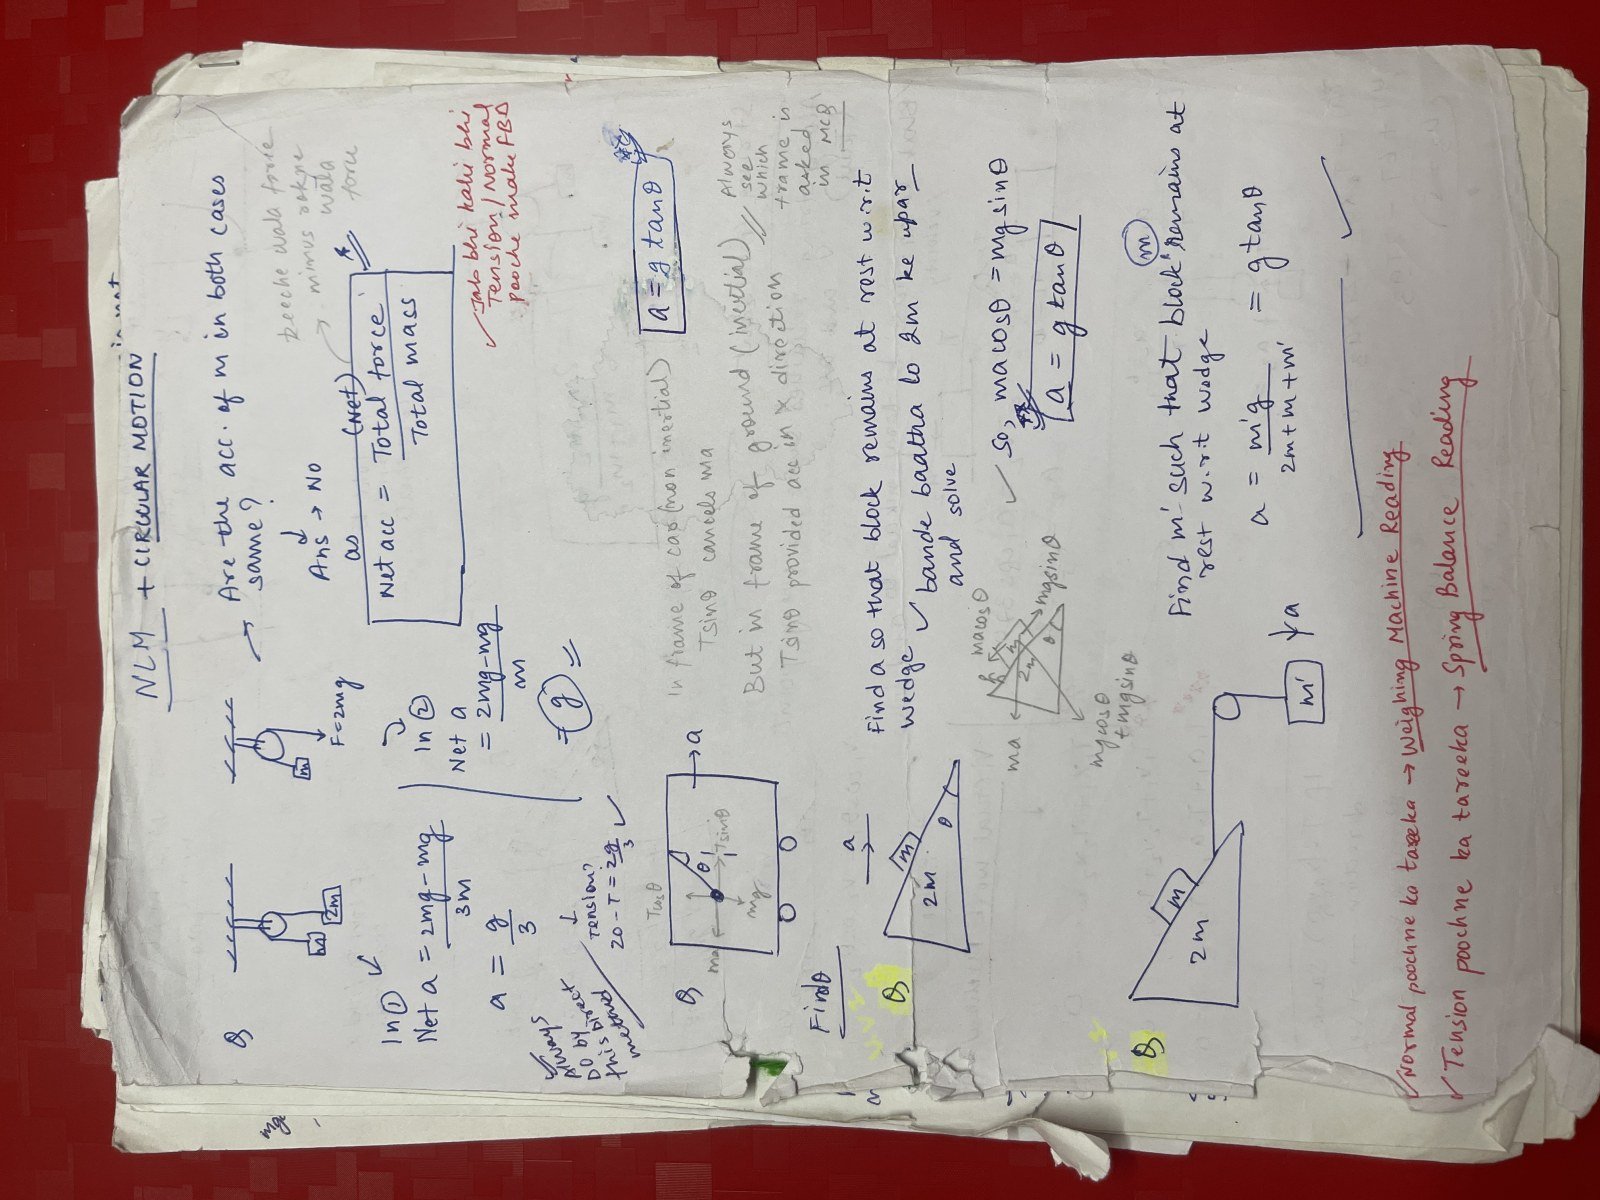 NLM + CIRCULAR MOTION
Q
m
2m
m
F=2mg
→ Are the acc. of m in both cases
same?
↓
Ans → NO
as (Net)
Net acc = Total force
Total mass
minus rokne
wala
force
In ①
Net a = 2mg-mg
3m
a = g
3
In ②
Net a
= 2mg-mg
m
= g
✓ Jab bhi kahi bhi
Tension/Normal
pooche make FBD
Always
DO by
this Direct
method
Tension?
↓
20-T = 2g
3 ✓
Q
Tcosθ
ma
θ
Tsinθ
mg
→ a
Find θ
In frame of car (non inertial)
Tsinθ cancels ma
But in frame of ground (inertial)
Tsinθ provided acc in x direction
a = g tanθ
Always
see
which
frame is
asked
in MCQ
Q
a
→
m
2m
θ
Find a so that block remains at rest w.r.t
wedge ✓ bande baatha lo 2m ke upar
and solve
macosθ
ma
m
2m
θ
mgsinθ
mgcosθ
+mgsinθ
✓ so, macosθ = mgsinθ
a = g tanθ
Q
m
2m
m'
a
Find m' such that block m remains at
rest w.r.t wedge
a = m'g = g tanθ
2m+m+m'
✓ Normal poochne ka tareeka → Weighing Machine Reading
✓ Tension poochne ka tareeka → Spring Balance Reading